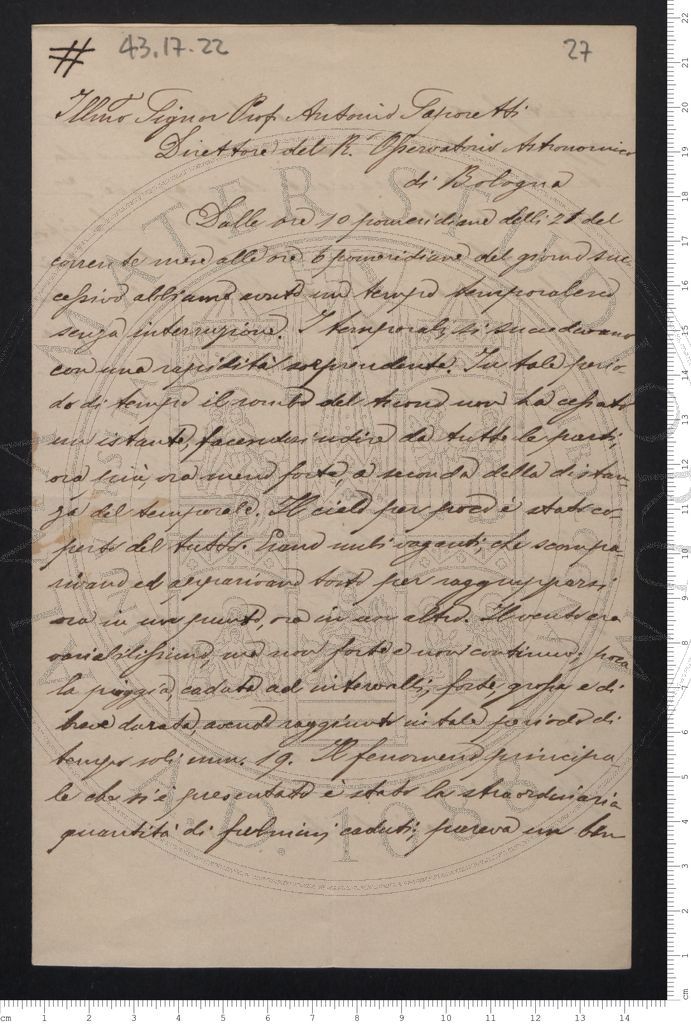 # 43.17.22 27
Illmo Signor Prof. Antonio Saporetti
Direttore del R. Osservatorio Astronomico
di Bologna
Dalle ore 10 pomeridiane delli 21 del
corrente mese alle ore 6 pomeridiane del giorno suc-
cessivo abbiamo avuto un tempo temporalesco
senza interruzione. I temporali si succedevano
con una rapidità sorprendente. In tale perio-
do di tempo il rombo del tuono non ha cessato
un istante, facendosi udire da tutte le parti,
ora più, ora meno forte, a seconda della distan-
za del temporale. Il cielo per poco è stato co-
perto del tutto. Erano nubi vaganti, che scompa-
rivano ed apparivano tosto per raggrupparsi
ora in un punto, ora in un altro. Il vento era
variabilissimo, ma non forte e non continuo; poca
la pioggia, caduta ad intervalli, forte, grossa e di
breve durata, avendo raggiunto in tale periodo di
tempo soli mm. 19. Il fenomeno principa-
le che si è presentato è stato la straordinaria
quantità di fulmini caduti; pareva un ben
ALMA MATER STUDIORUM
A.D. 1088